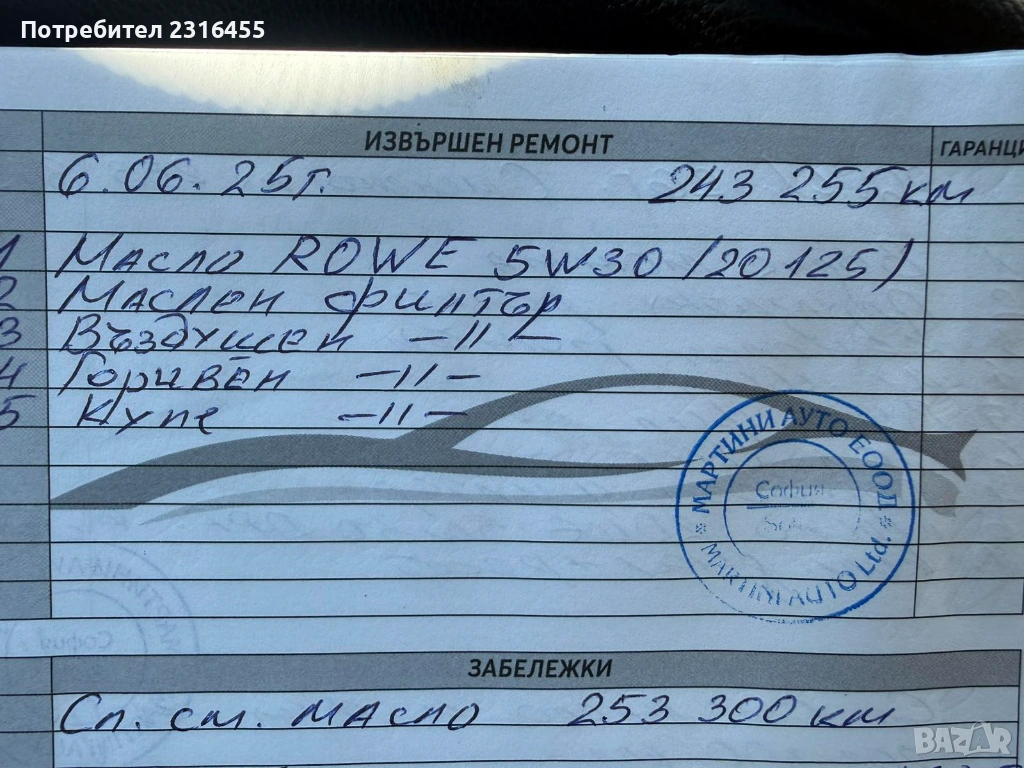 Потребител 2316455
ИЗВЪРШЕН РЕМОНТ
ГАРАНЦИ
6.06.25г. 243 255 км
1 Масло ROWE 5W30 /20125/
2 Маслен филтър
3 Въздушен -11-
4 Горивен -11-
5 Купе -11-
МАРТИНИ АУТО ЕООД
София
MARTINI AUTO Ltd.
ЗАБЕЛЕЖКИ
Сл. см. масло 253 300 км
BAZAR